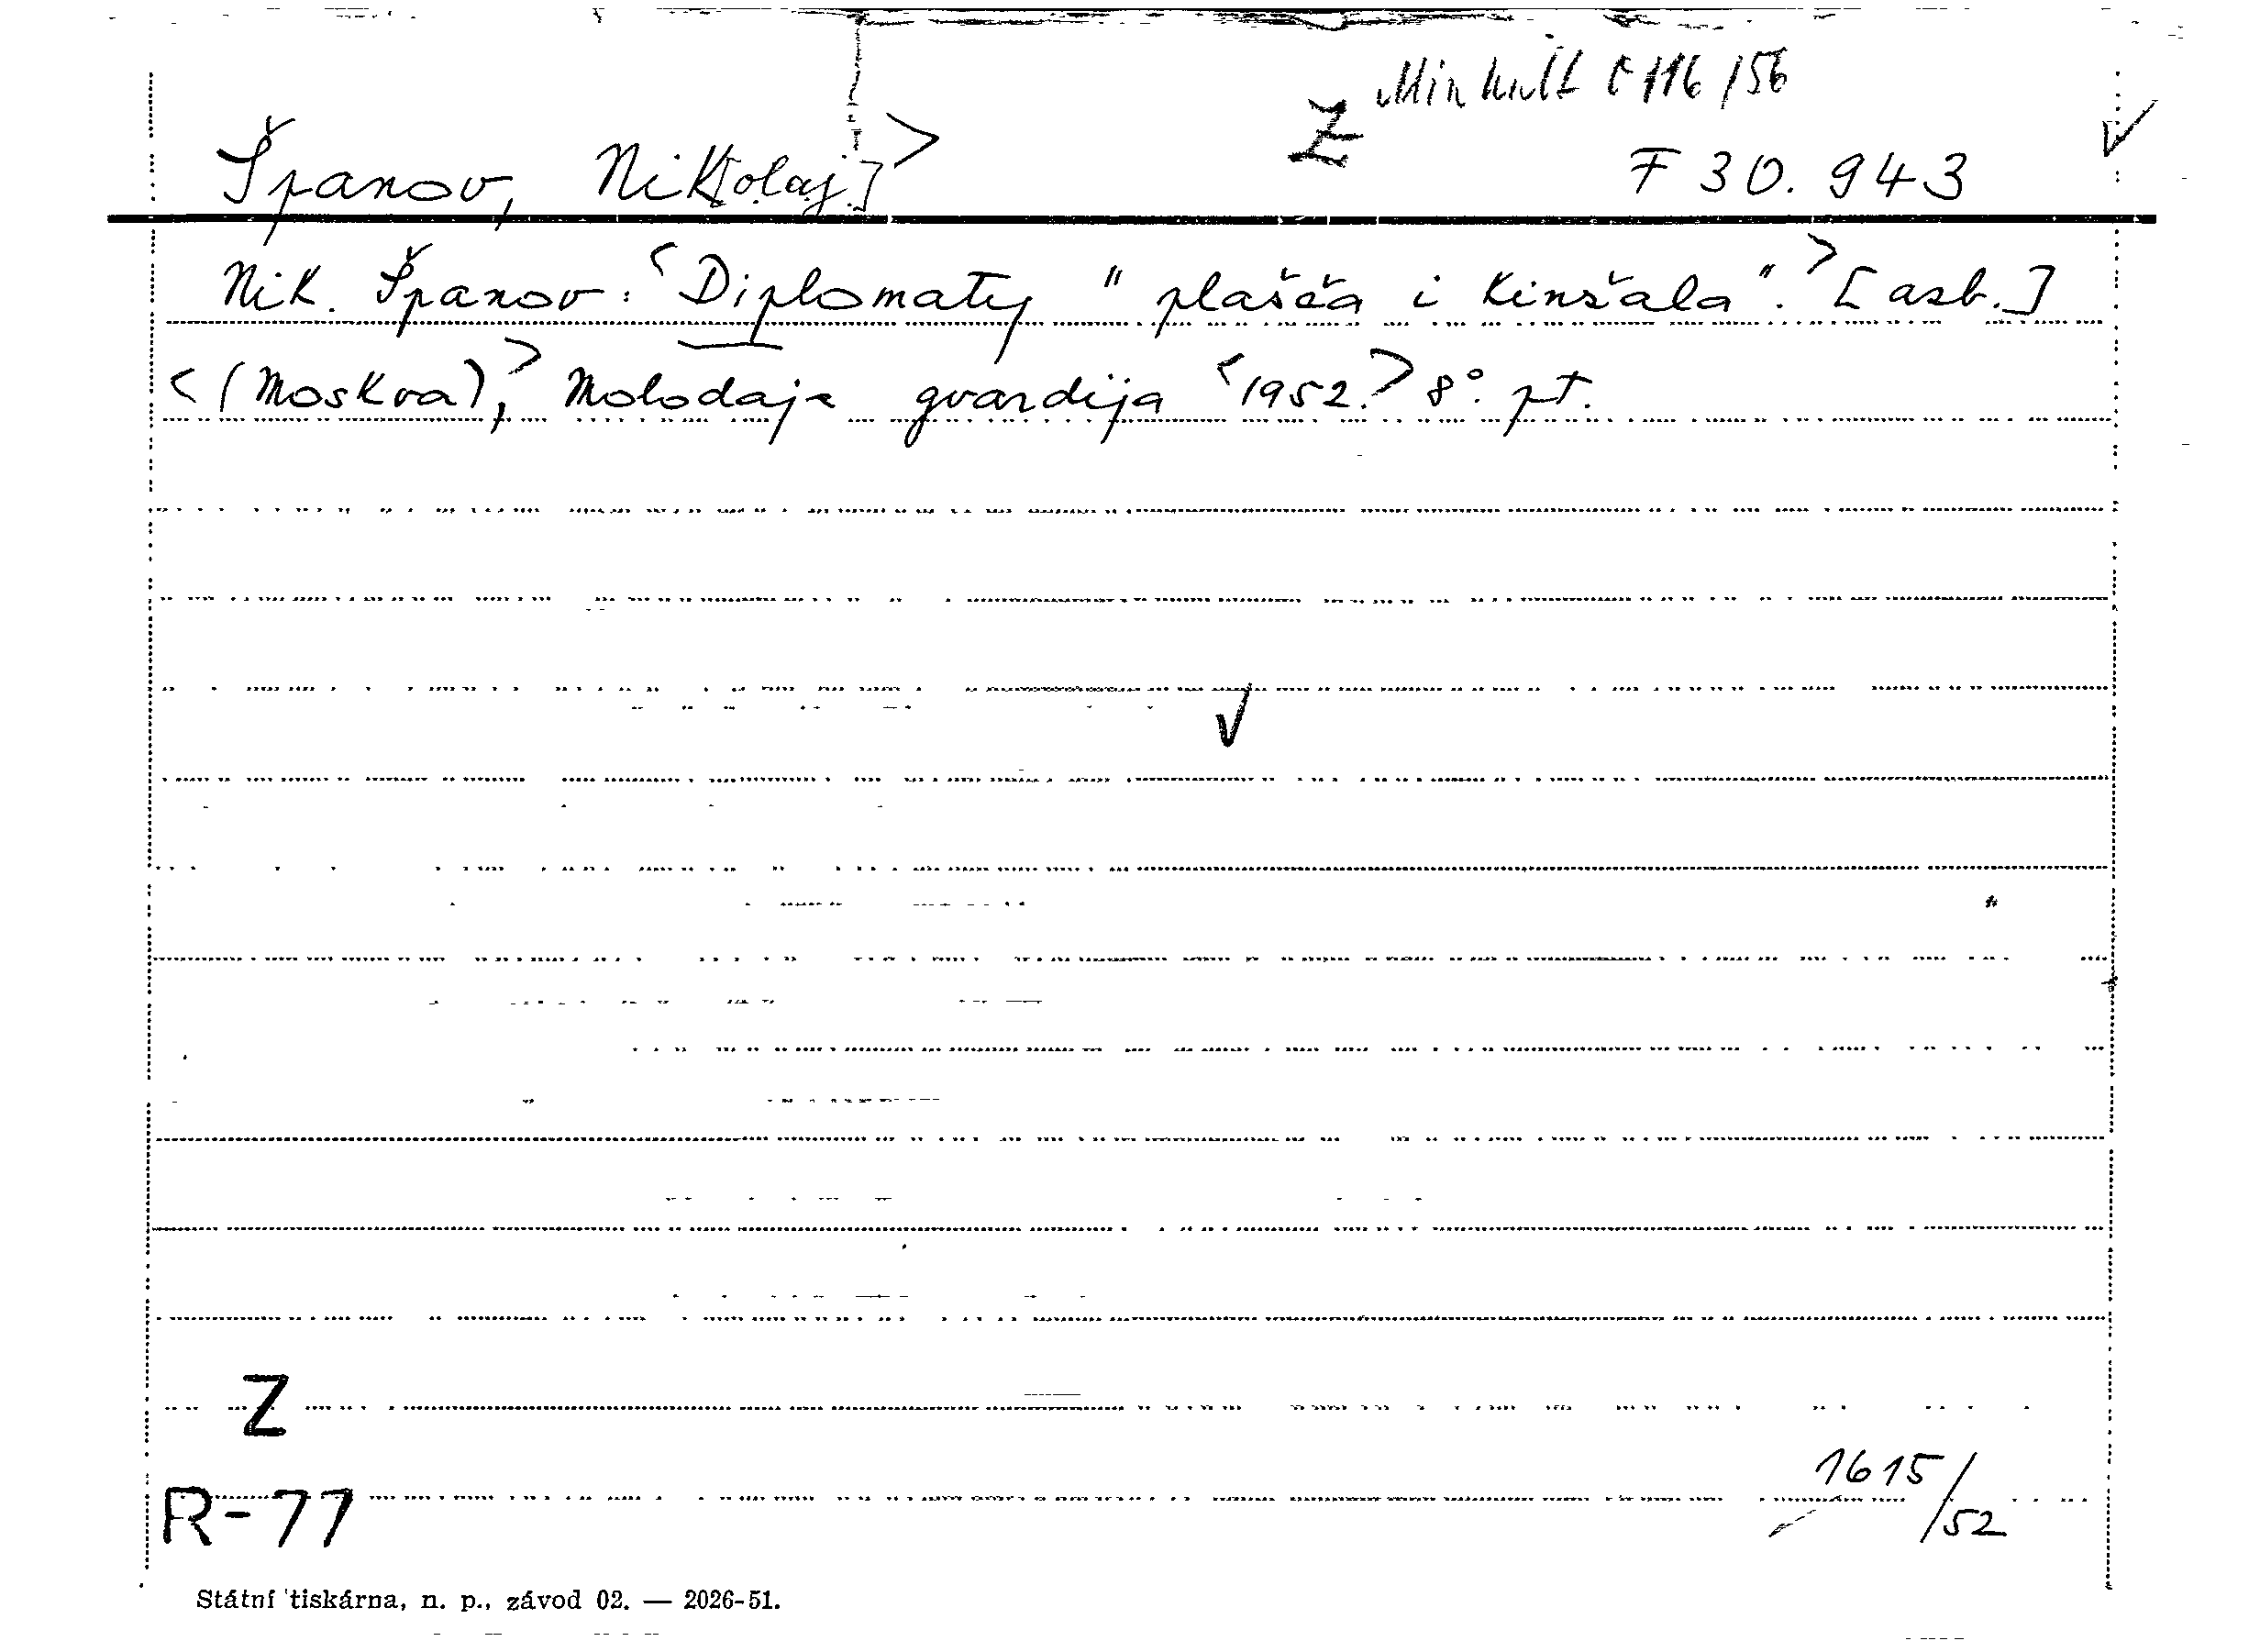 Z Min kult č 116/56
Španov, Nik[olaj] > F 30.943
Nik. Španov: <Diplomaty "plašča i kinžala".> [azb.]
<(Moskva),> Molodaja gvardija <1952.> 8°. pt.
Z
1615/52
R-77
Státní tiskárna, n. p., závod 02. — 2026-51.